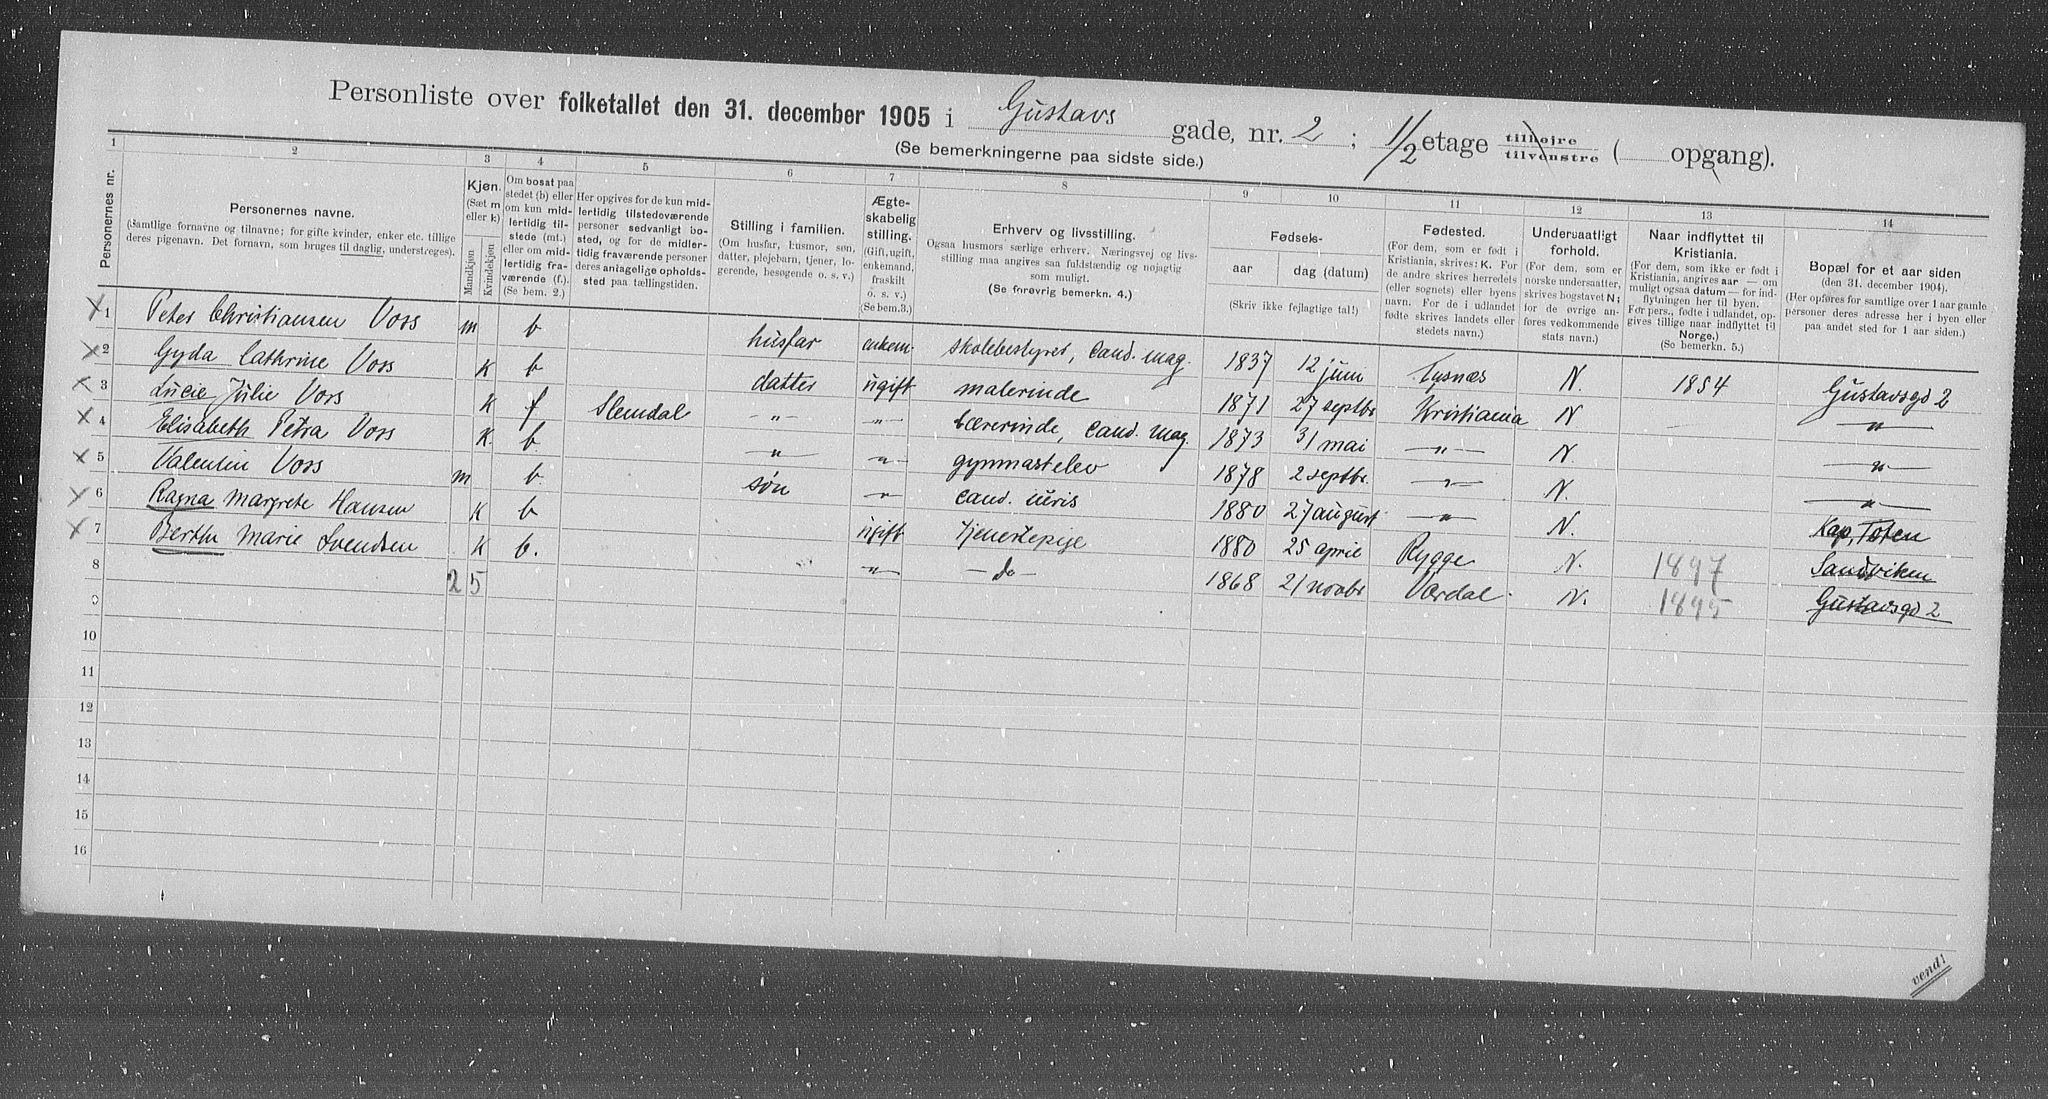 Personliste over folketallet den 31. december 1905 i Gustavs gade, nr. 2 ; 1/2 etage tilhøjre tilvenstre ( opgang).
(Se bemerkningerne paa sidste side.)
1 2 3 4 5 6 7 8 9 10 11 12 13 14
Personernes nr.
Personernes navne.
(Samtlige fornavne og tilnavne; for gifte kvinder, enker etc. tillige
deres pigenavn. Det fornavn, som bruges til daglig, understreges).
Kjøn.
(Sæt m
eller k)
Mandkjøn
Kvindekjøn
Om bosat paa
stedet (b) eller
om kun mid-
lertidig til-
stede (mt.)
eller om mid-
lertidig fra-
værende (f.).
(Se bem. 2.)
Her opgives for de kun mid-
lertidig tilstedeværende
personer sedvanligt bo-
sted, og for de midler-
tidig fraværende personer
deres antagelige opholds-
sted paa tællingstiden.
Stilling i familien.
(Om husfar, husmor, søn,
datter, plejebarn, tjener, lo-
gerende, besøgende o. s. v.)
Ægte-
skabelig
stilling.
(Gift, ugift,
enkemand,
fraskilt
o. s. v.)
(Se bem. 3.)
Erhverv og livsstilling.
Ogsaa husmors særlige erhverv. Næringsvej og livs-
stilling maa angives saa fuldstændig og nøjagtig
som muligt.
(Se forøvrig bemerkn. 4.)
Fødsels-
aar
dag (datum)
(Skriv ikke fejlagtige tal!)
Fødested.
(For dem, som er født i
Kristiania, skrives: K. For
de andre skrives herredets
(eller sognets) eller byens
navn. For de i udlandet
fødte skrives landets eller
stedets navn.)
Undersaatligt
forhold.
(For dem, som er
norske undersaatter,
skrives bogstavet N;
for de øvrige an-
føres vedkommende
stats navn.)
Naar indflyttet til
Kristiania.
(For dem, som ikke er født i
Kristiania, angives aar — om
muligt ogsaa datum — for ind-
flytningen her til byen.
For pers., fødte i udlandet, op-
gives tillige naar indflyttet til
Norge.)
(Se bemerkn. 5.)
Bopæl for et aar siden
(den 31. december 1904).
(Her opføres for samtlige over 1 aar gamle
personer deres adresse her i byen eller
paa andet sted for 1 aar siden.)
1 Peter Christiansen Voss m b husfar enkem. skolebestyrer, cand. mag. 1837 12 juni Tysnæs N. 1854 Gustavsgd 2
2 Gyda Cathrine Voss K b datter ugift malerinde 1871 27 septbr Kristiania N — —"—
3 Lucie Julie Voss K f Slemdal —"— —"— Lærerinde, cand. mag. 1873 31 mai —"— N. —"—
4 Elisabeth Petra Voss K. b. —"— —"— gymnastelev 1878 2 septbr. —"— N. —"—
5 Valentin Voss m b. søn " cand. iuris 1880 27 august —"— N. Kap, Toten
6 Ragna Margrete Hansen K b ugift tjenestepige 1880 25 april Rygge N. 1897 Sandviken
7 Berthe Marie Svendsen K b. —"— — do — 1868 21 novbr Værdal. N. 1895 Gustavsgd 2
8 2 5
9
10
11
12
13
14
15
16
vend!